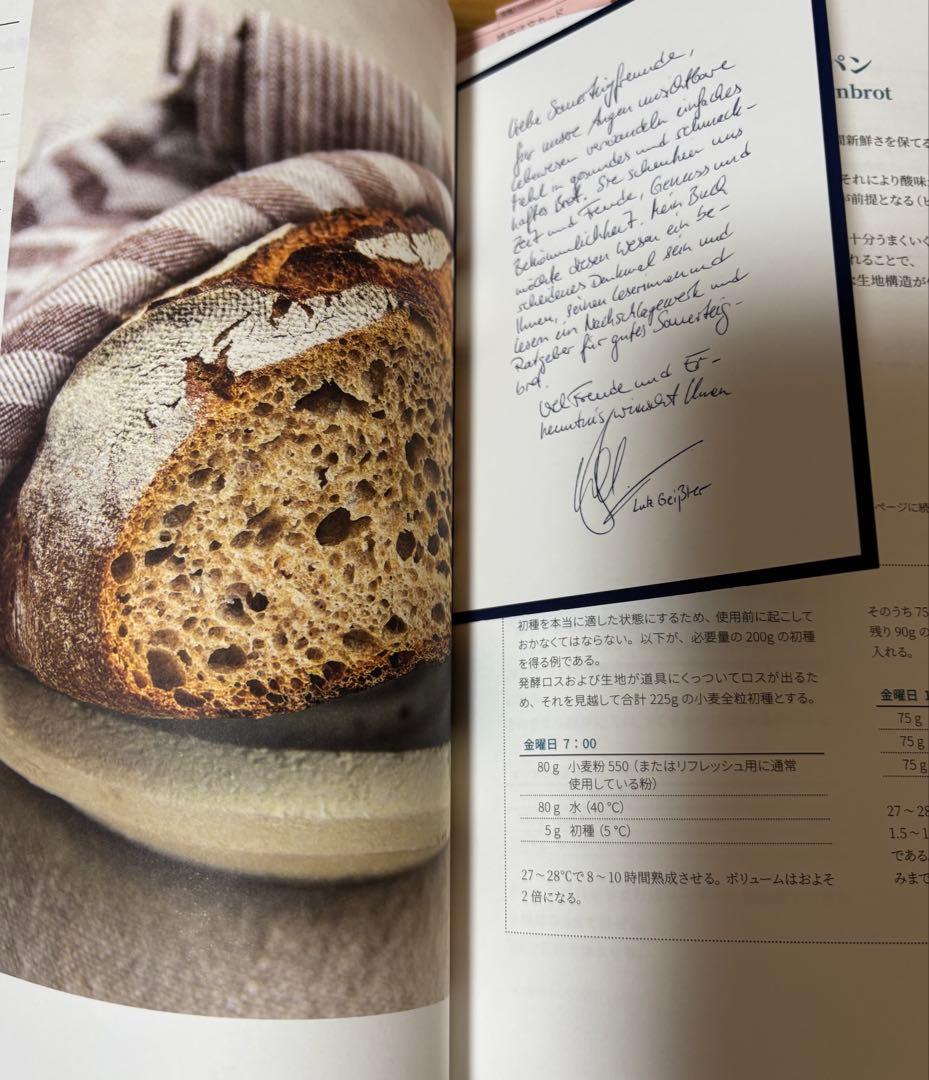 Liebe Sauerteigfreunde,
für unsere Augen unsichtbare
Lebewesen verwandeln einfaches
Mehl in gesundes und schmack-
haftes Brot. Sie schenken uns
Zeit und Freude, Genuss und
Bekömmlichkeit. Mein Buch
möchte diesen Wesen ein be-
scheidenes Denkmal sein und
Ihnen, seinen Leserinnen und
Lesern ein Nachschlagewerk und
Ratgeber für gutes Sauerteig-
brot.
Viel Freude und Er-
kenntnis wünscht Ihnen
Lutz Geißler
パン
nbrot
間新鮮さを保てる
それにより酸味が
前提となる（ヒ
十分うまくいく
れることで、
な生地構造が
ページに続
初種を本当に適した状態にするため、使用前に起こして
おかなくてはならない。以下が、必要量の200gの初種
を得る例である。
発酵ロスおよび生地が道具にくっついてロスが出るた
め、それを見越して合計 225gの小麦全粒初種とする。
金曜日 7：00
80g 小麦粉 550（またはリフレッシュ用に通常
使用している粉）
80g 水（40℃）
5g 初種（5℃）
27～28℃で 8～10 時間熟成させる。ボリュームはおよそ
2 倍になる。
そのうち 75
残り 90gの
入れる。
金曜日 1
75g
75g
75g
27～28
1.5～1
である
みまで